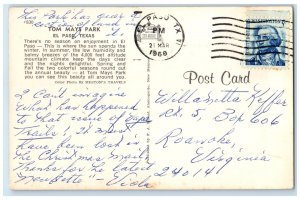 The Park has year
TOM MAYS PARK
EL PASO, TEXAS
There's no season on enjoyment in El
Paso — This is where the sun spends the
winter. In summer, the low humidity and
balmy breezes of the 4,000 feet altitude
mountain climate keep the days clear
and the nights delightful. Spring and
Fall the two colorful seasons round out
the annual beauty — at Tom Mays Park
you see this beautiful desert all around
EL PASO, TX
PM
21 MAR
1968
Post Card
I can't imagine
what has happened
to that issue of
Trails, I must
have been lost in
the Christmas mail
Thanks for the latest
Newsletter. Viola
Willamella Keffer
Rt. 5, Box 606
Roanoke,
Virginia
24014